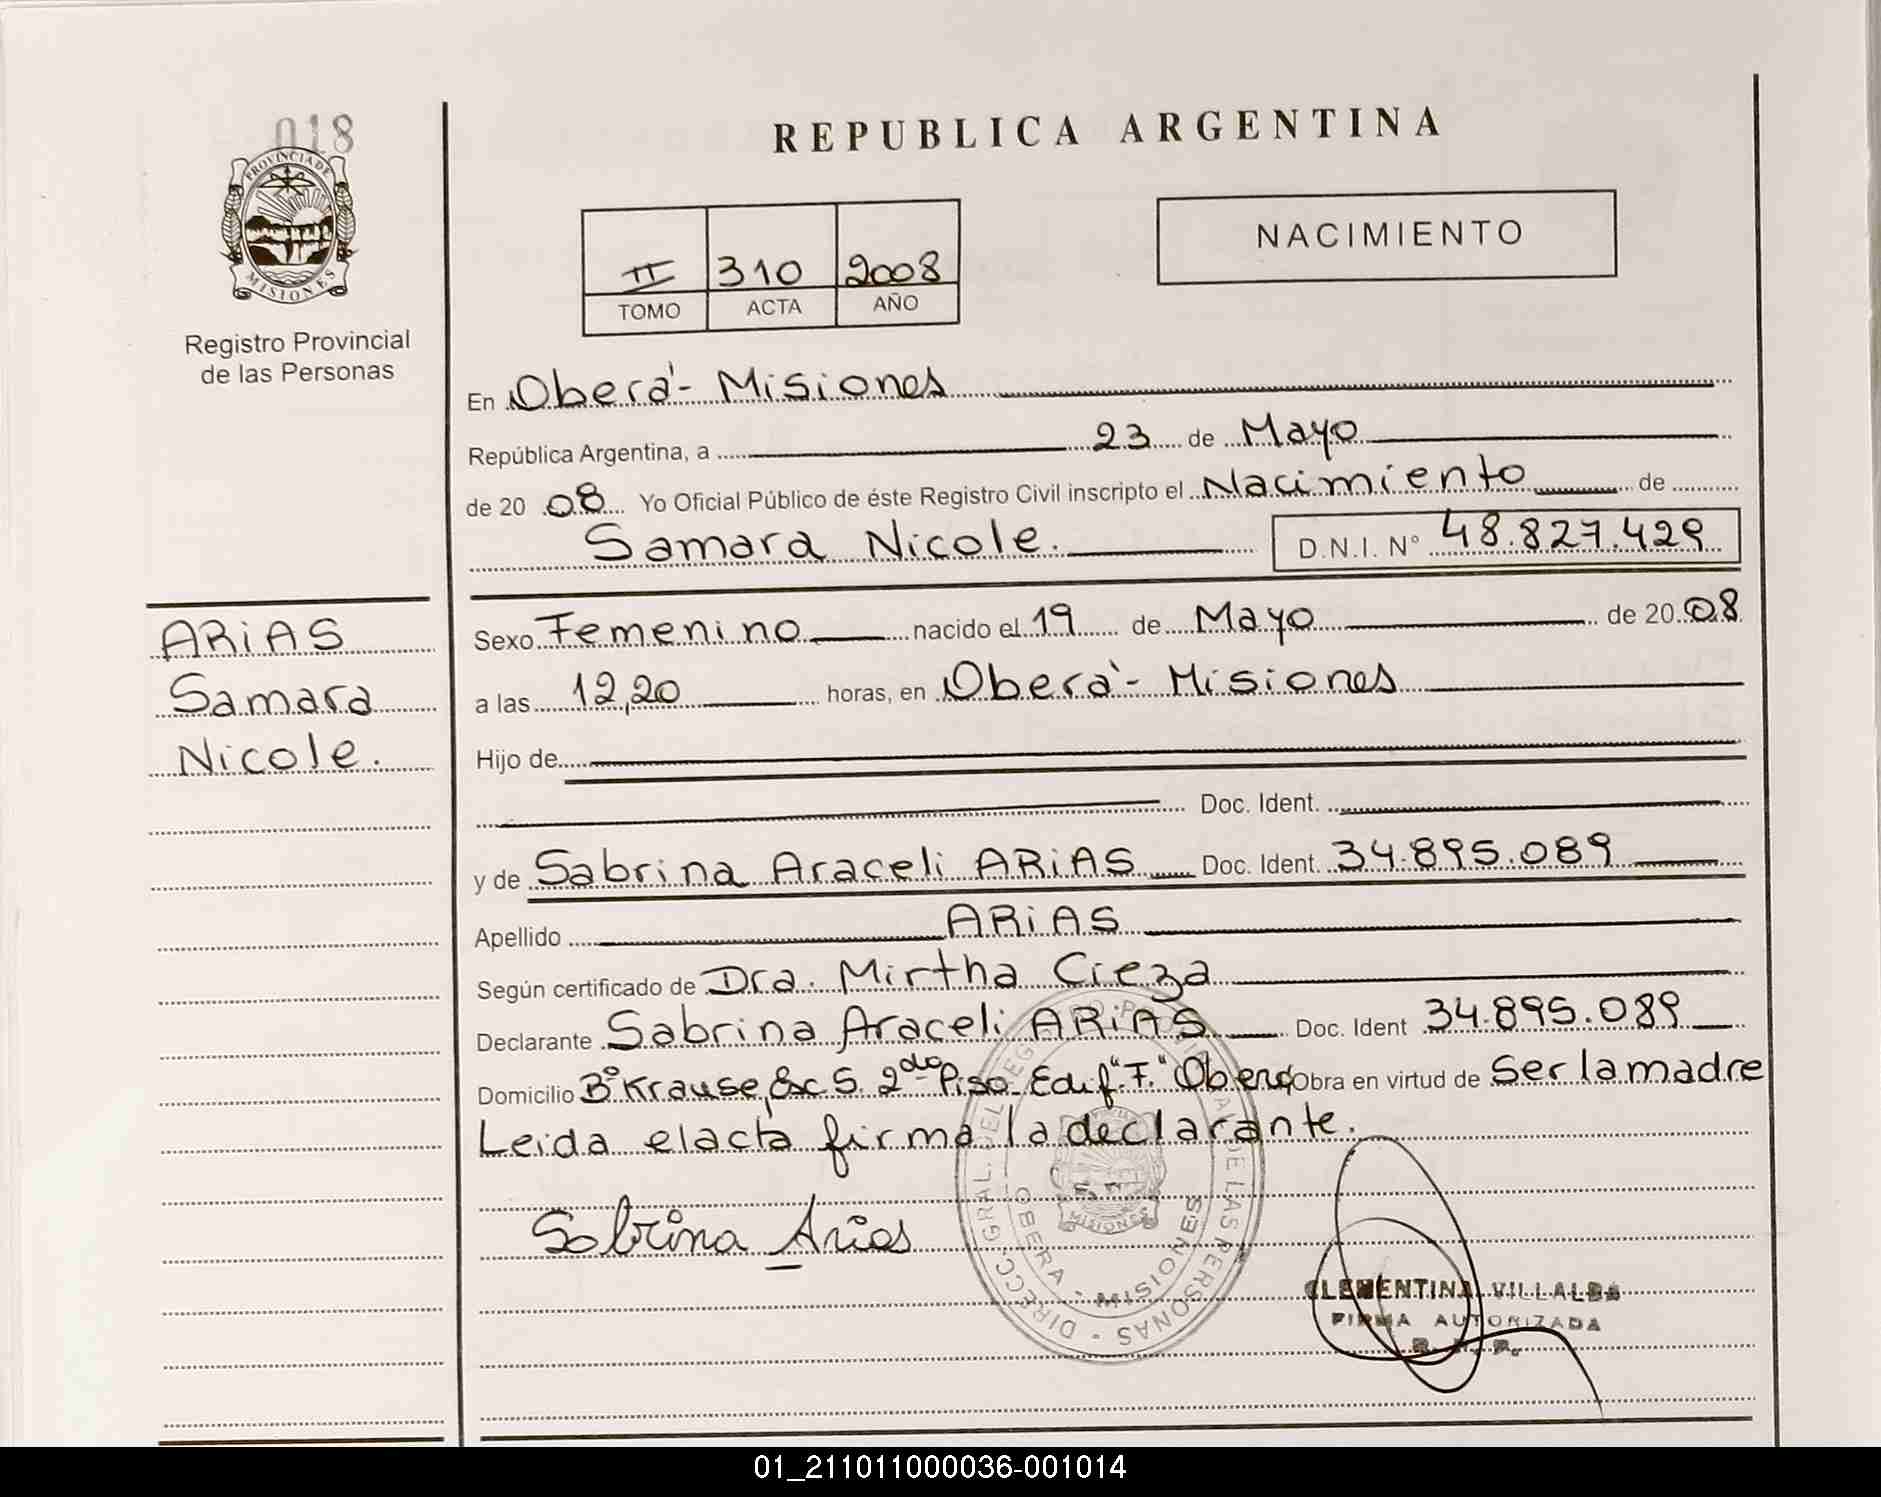 018
PROVINCIA DE
MISIONES
Registro Provincial
de las Personas
REPUBLICA ARGENTINA
NACIMIENTO
II 310 2008
TOMO ACTA AÑO
En Oberá - Misiones
República Argentina, a 23 de Mayo
de 20 08 Yo Oficial Público de éste Registro Civil inscripto el Nacimiento de
Samara Nicole. D.N.I. N° 48.827.429
ARIAS
Samara
Nicole.
Sexo Femenino nacido el 19 de Mayo de 20 08
a las 12,20 horas, en Oberá - Misiones
Hijo de
Doc. Ident.
y de Sabrina Araceli ARIAS Doc. Ident. 34.895.089
Apellido ARIAS
Según certificado de Dra. Mirtha Cieza
Declarante Sabrina Araceli ARIAS Doc. Ident 34.895.089
Domicilio B° Krause, Esc 5. 2do Piso Edif "F." Oberá Obra en virtud de Ser la madre
Leida el acta firma la declarante.
Sabrina Arias
DIRECC. GRAL. DEL REGISTRO PROVINCIAL DE LAS PERSONAS
OBERA - MISIONES
MISIONES
CLEMENTINA VILLALBA
FIRMA AUTORIZADA
R. P. P.
01_211011000036-001014